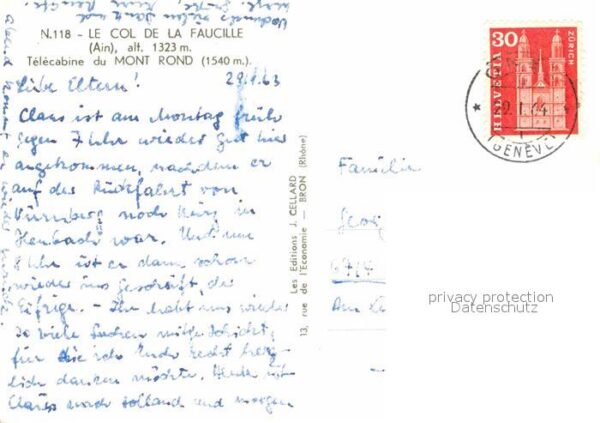 N.118 - LE COL DE LA FAUCILLE
(Ain), alt. 1323 m.
Télécabine du MONT ROND (1540 m.).
29.1.63
Liebe Eltern!
Claus ist am Montag früh
gegen 7 Uhr wieder gut hier
angekommen, nachdem er
auf der Rückfahrt von
Nürnberg noch kurz in
war. Und um
8 Uhr ist er dann schon
wieder ins Geschäft, der
Eifrige. - Ihr habt uns wieder
so viele Sachen mitgeschickt,
für die ich Euch recht herz-
lich danken möchte. Heute ist
Claus nach Holland und morgen
Abend kommt er wieder zurück.
Les Editions J. CELLARD
13, rue de l'Economie - BRON (Rhône)
Familie
Georg
HELVETIA
30
ZÜRICH
GENÈVE
privacy protection
Datenschutz